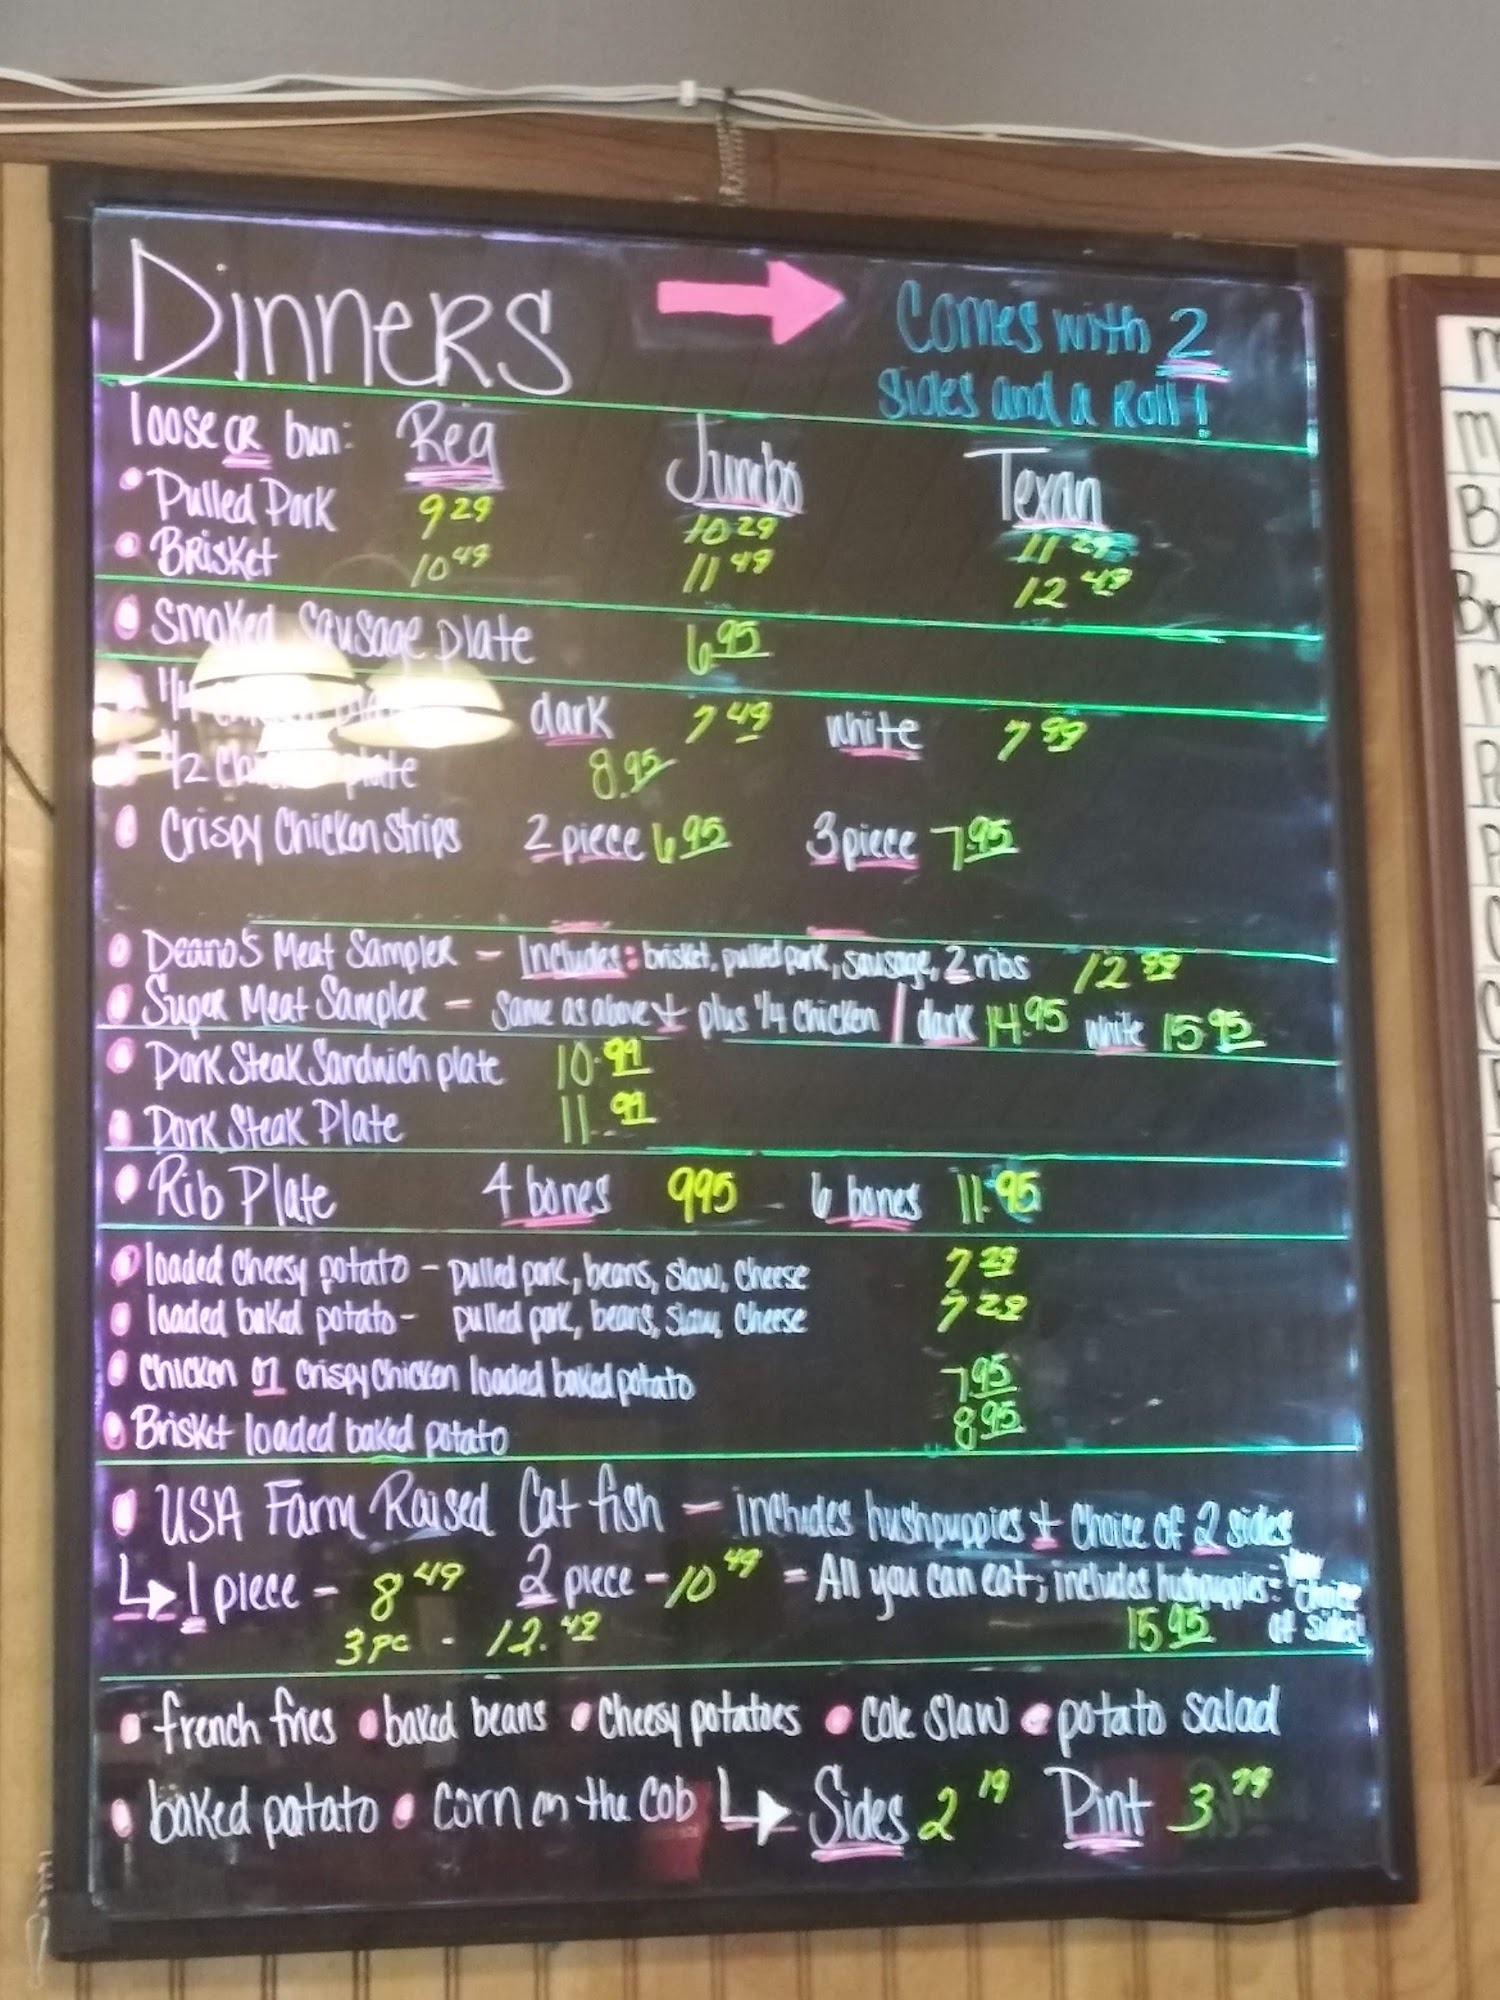 Dinners Comes with 2
sides and a Roll!
loose or bun: Reg Jumbo Texan
Pulled Pork 9 29 10 29 11 29
Brisket 10 49 11 49 12 49
Smoked Sausage Plate 6.95
1/4 Chicken plate dark 7 49 white 7 99
1/2 Chicken plate 8.95
Crispy Chicken Strips 2 piece 6.95 3 piece 7.95
Deano's Meat Sampler - Includes: brisket, pulled pork, sausage, 2 ribs 12.99
Super Meat Sampler - Same as above + plus 1/4 chicken / dark 14.95 white 15.95
Pork Steak Sandwich plate 10.99
Pork Steak Plate 11.99
Rib Plate 4 bones 995 6 bones 11.95
loaded Cheesy potato - pulled pork, beans, slaw, cheese 7 29
loaded baked potato - pulled pork, beans, slaw, cheese 7 29
Chicken or crispy chicken loaded baked potato 7.95
Brisket loaded baked potato 8.95
USA Farm Raised Cat fish - includes hushpuppies + choice of 2 sides
1 piece - 8 49 2 piece - 10 49 - All you can eat; includes hushpuppies choice of sides!
3 pc - 12.49 15.95
french fries baked beans cheesy potatoes cole slaw potato salad
baked potato corn on the cob Sides 2 19 Pint 3 79